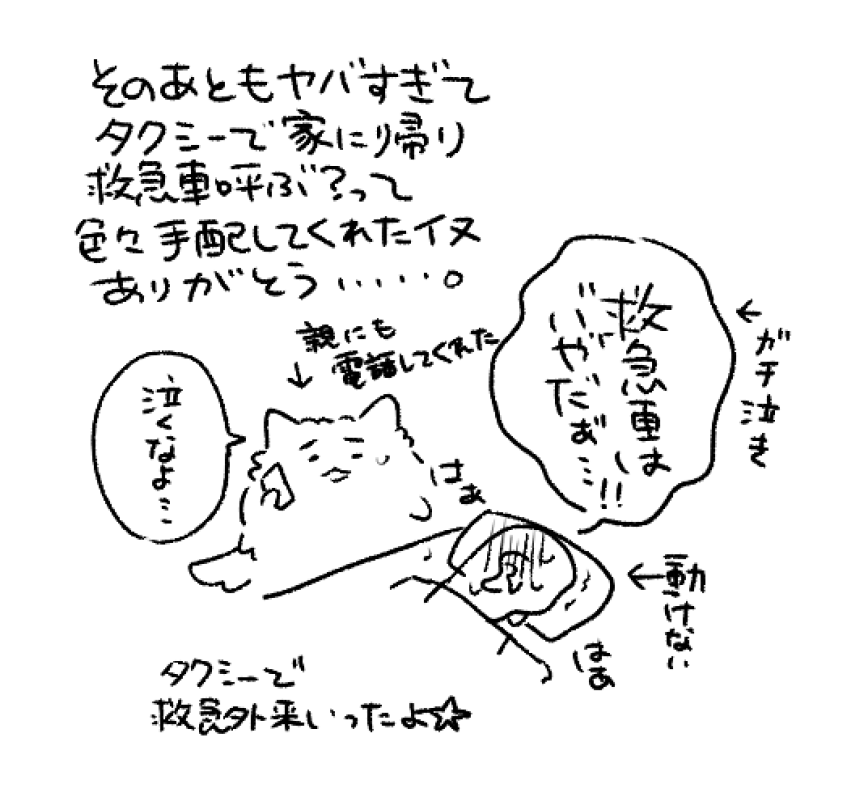 そのあともヤバすぎて
タクシーで家に帰り
救急車呼ぶ？って
色々手配してくれたイヌ
ありがとう・・・・・。
親にも
電話してくれた
↓
泣くなよ…
救急車は
いやだぁ…!!
←ガチ泣き
はぁ
←動けない
はぁ
タクシーで
救急外来いったよ☆